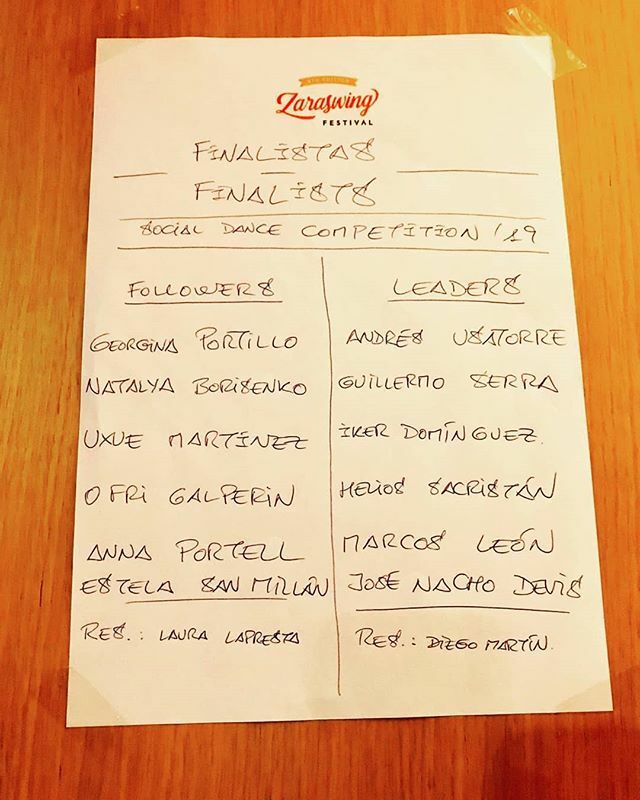 4TH EDITION
Zaraswing
FESTIVAL
FINALISTAS
FINALISTS
SOCIAL DANCE COMPETITION '19
FOLLOWERS
GEORGINA PORTILLO
NATALYA BORISENKO
UXUE MARTÍNEZ
OFRI GALPERIN
ANNA PORTELL
ESTELA SAN MILLÁN
RES.: LAURA LAPRESTA
LEADERS
ANDRÉS USATORRE
GUILLERMO SERRA
IKER DOMÍNGUEZ.
HELIOS SACRISTÁN
MARCOS LEÓN
JOSE NACHO DEVIS
RES.: DIEGO MARTÍN.